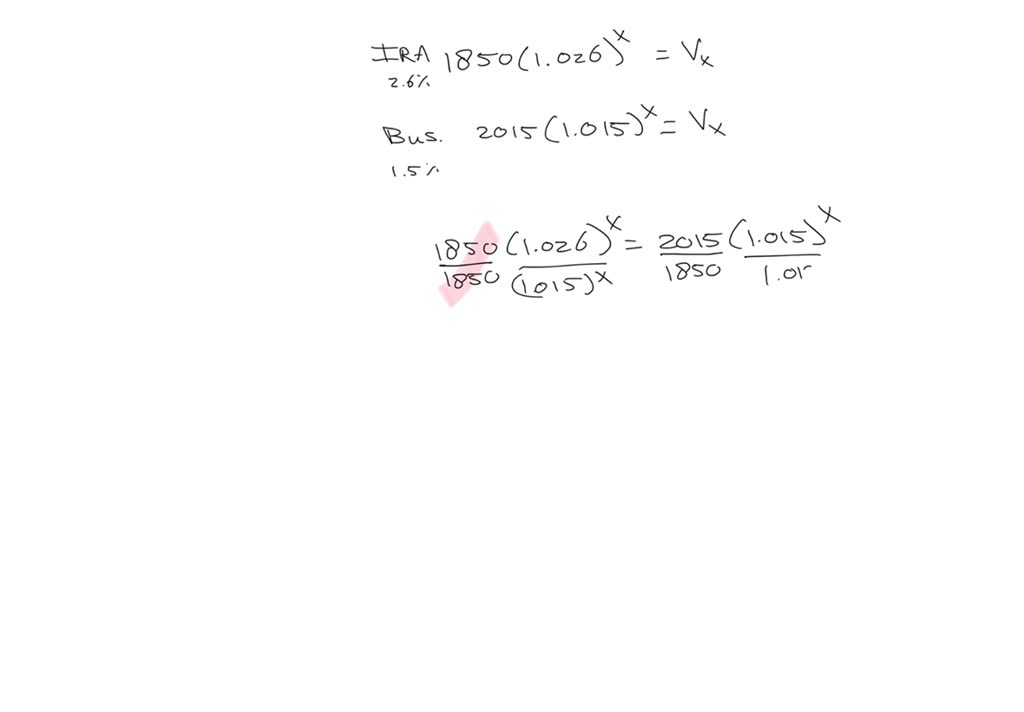 IRA 1850(1.026)^x = Vx
2.6%
Bus. 2015(1.015)^x = Vx
1.5%
1850 (1.026)^x = 2015 (1.015)^x
1850 (1.015)^x 1850 1.01